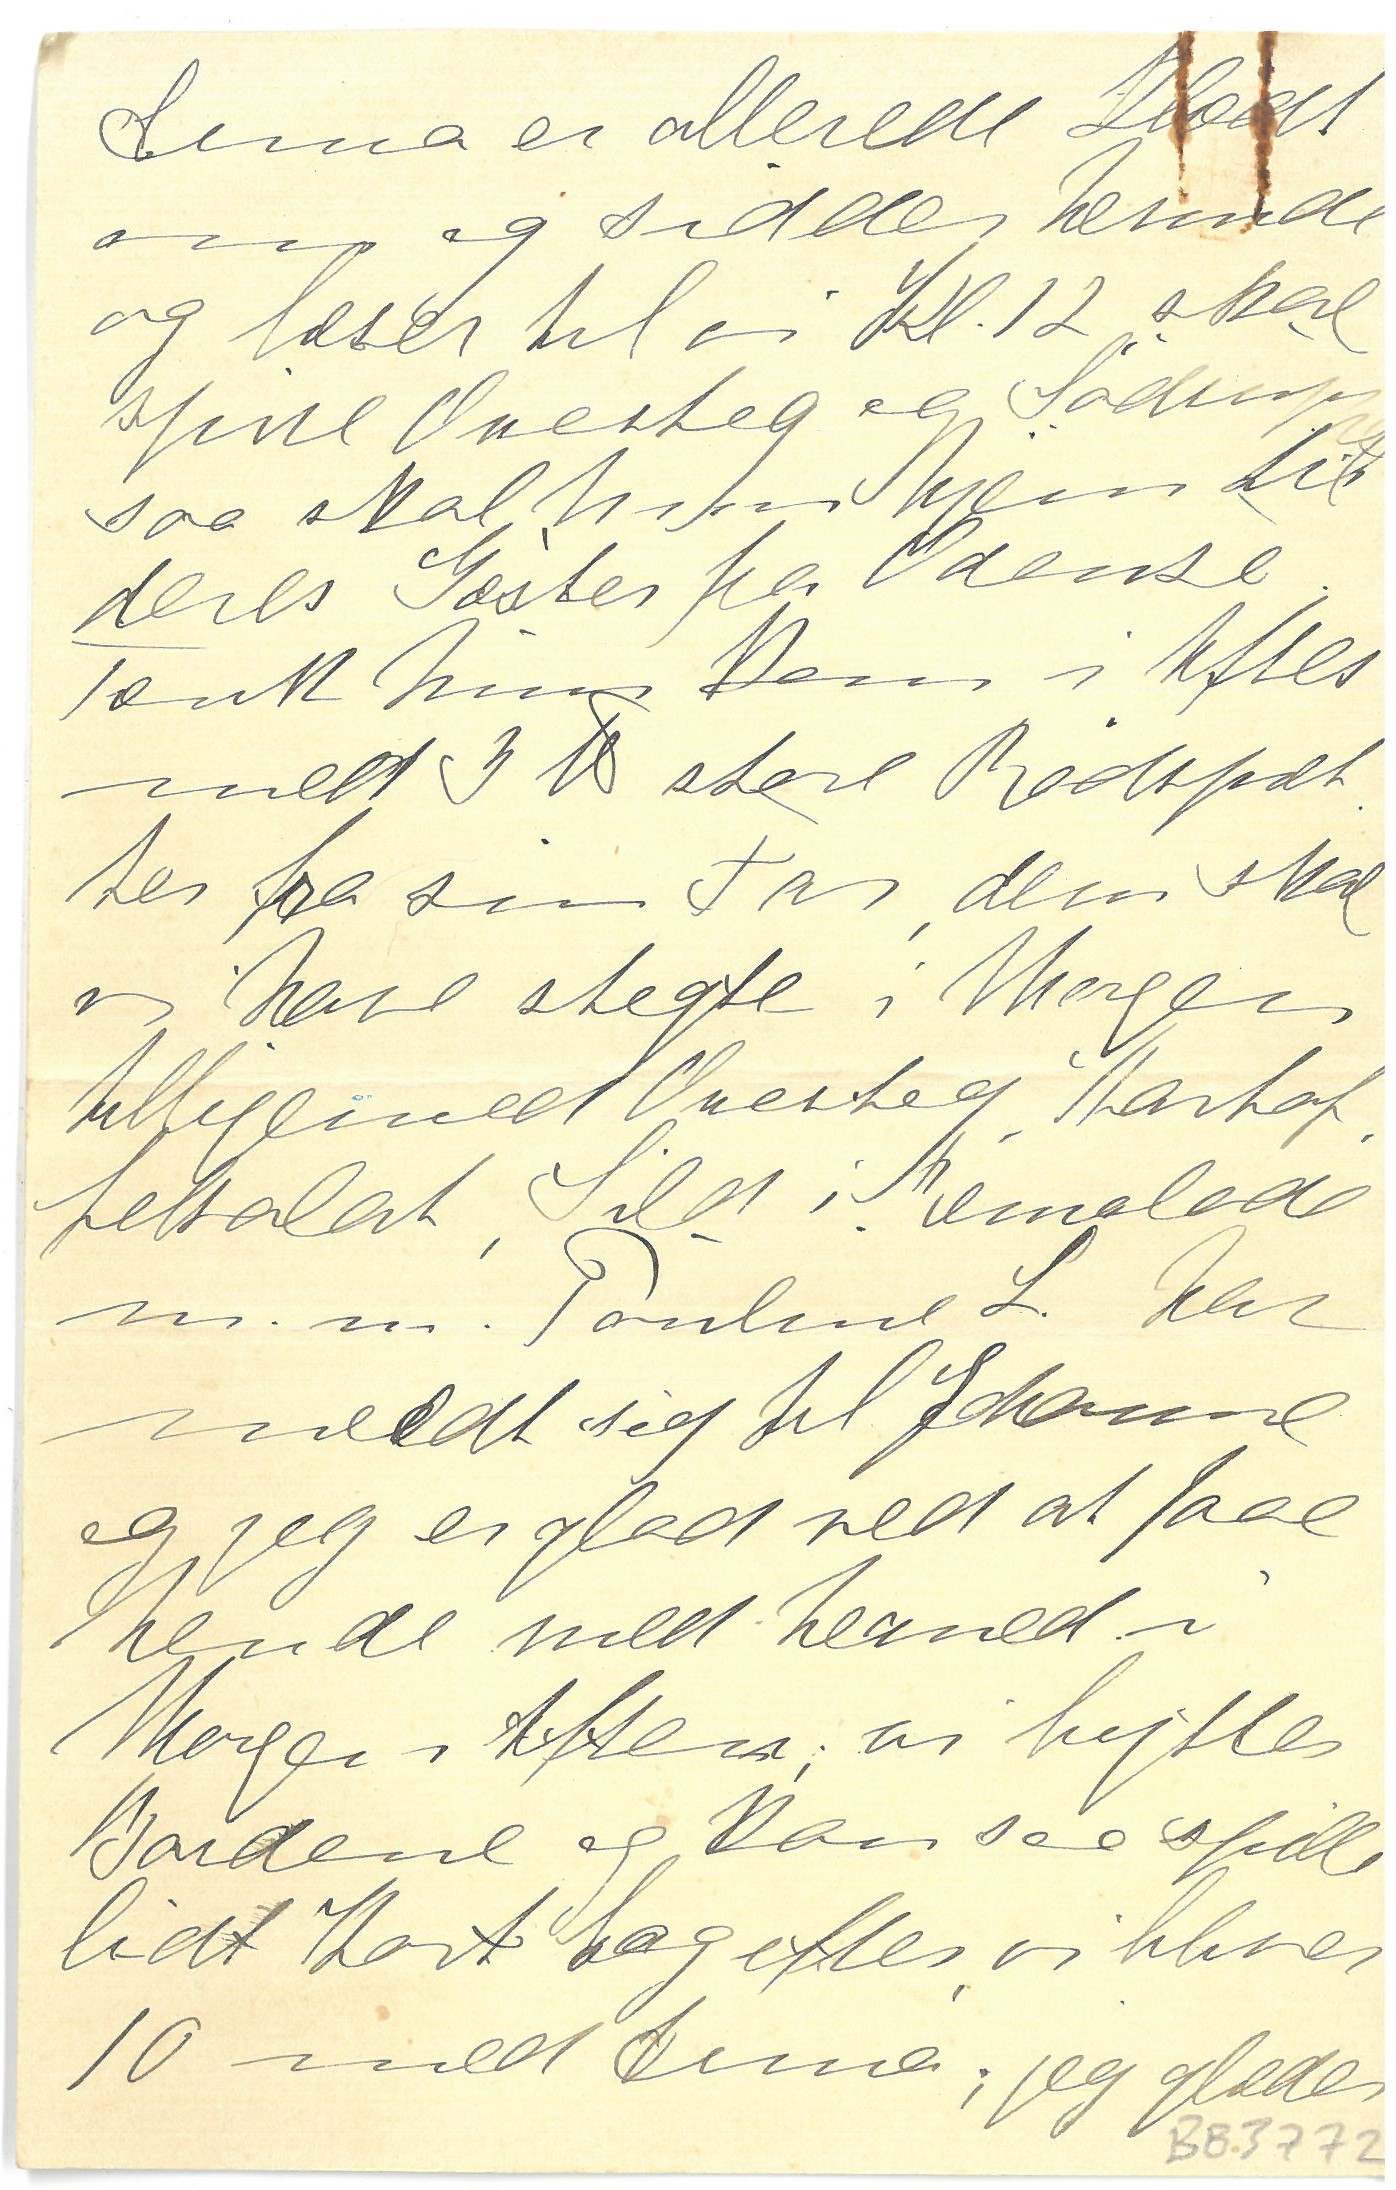 er allerede klædt
om og sidder herinde
og læser til vi Kl. 12 skal
spise Oxesteg og Södsuppe
saa skal hun hjem til
deres Gæster fra Odense.
Tænk hun kom i Aftes
med 3 ℔ store Rødspæt
ter fra sin Far, dem skal
vi have stegte i Morgen
tilligemed Oxesteg, Kartof
felsalat, Sild i Remolade
m.m. Pouline L. har
meldt sig til Johanne
og jeg er glad ved at faae
hende med herned i
Morgen Aften; vi hytter
Bordene og kan saa spille
lidt Kort bagefter, vi bliver
10 med ; jeg glæder
BB3772